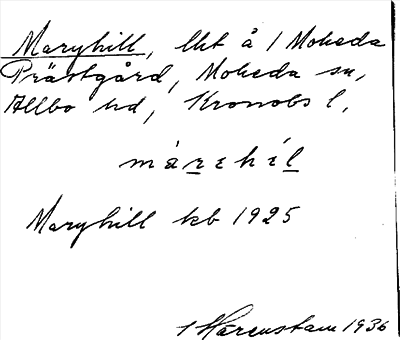 Maryhill, lht å 1 Moheda
Prästgård, Moheda sn,
Allbo hd, Kronobs l.
márehíl
Maryhill kb 1925
Harenstam 1936